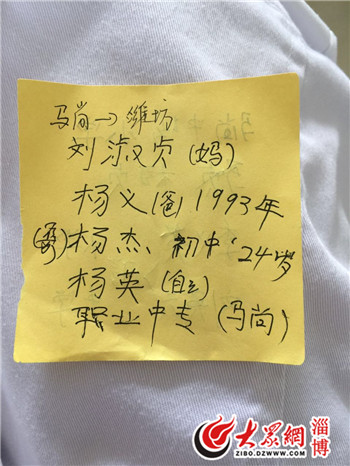 马尚→潍坊
刘淑贞(妈)
杨义(爸)1993年
(哥)杨杰、初中、24岁
杨英(自己)
职业中专(马尚)
大众網 淄博
ZIBO.DZWWW.COM